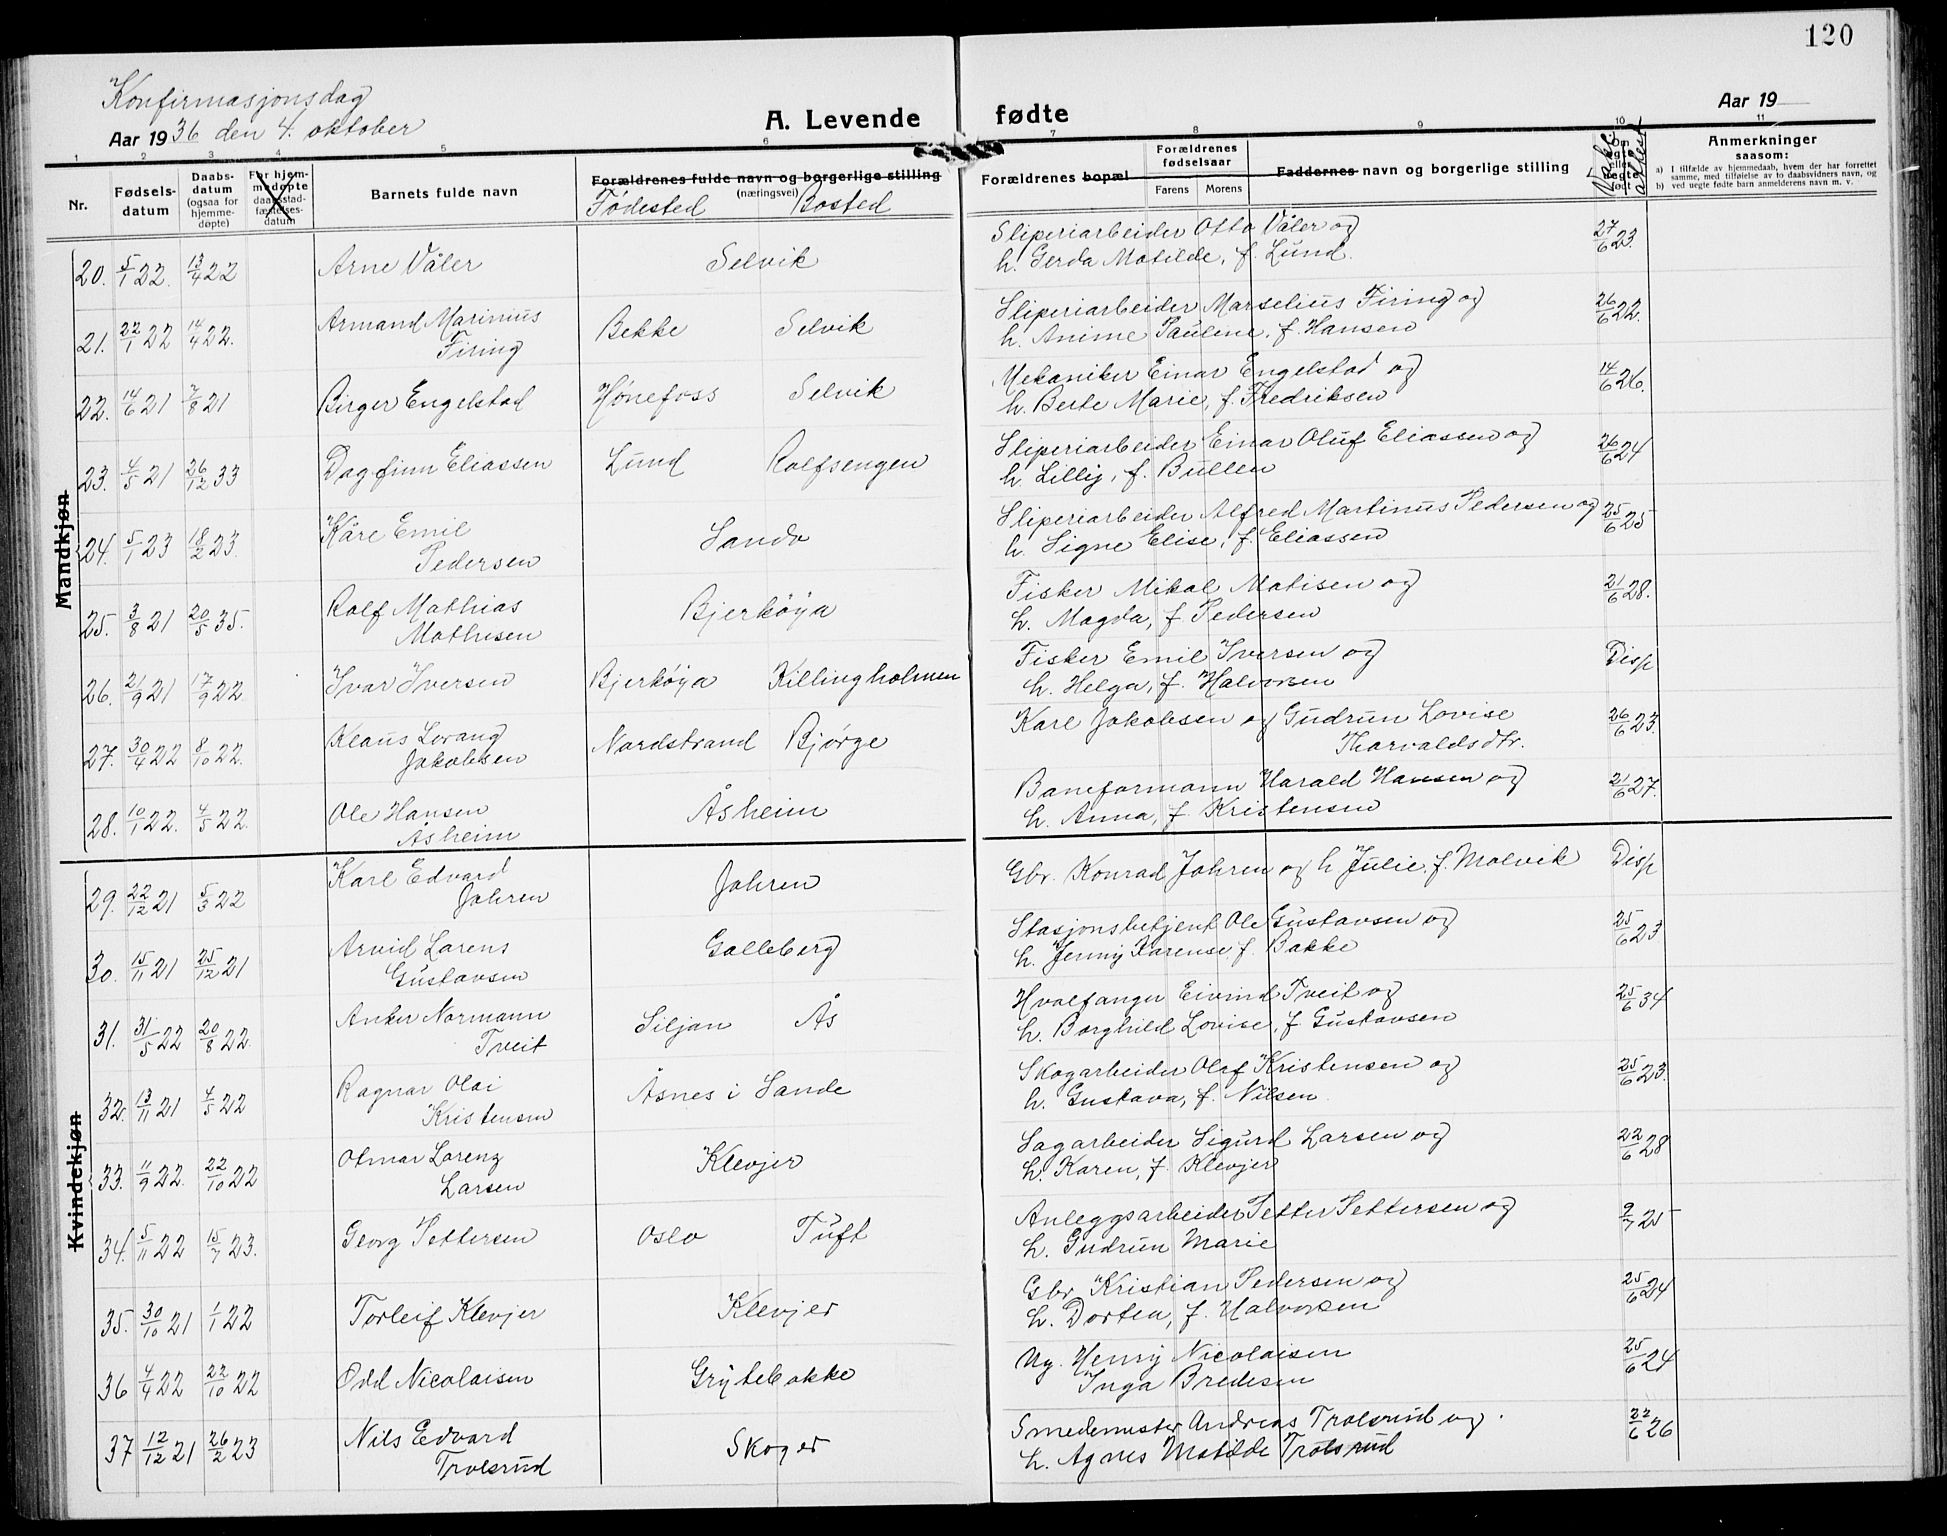 120
Konfirmasjonsdag
Aar 1936 den 4. oktober
A. Levende fødte
Aar 19
1 2 3 4 5 6 7 8 9 10 11
Nr.
Fødsels-datum
Daabs-datum (ogsaa for hjemme-døpte)
For hjem-medøpte daabsstad-fæstelses-datum
Barnets fulde navn
Forældrenes fulde navn og borgerlige stilling (næringsvei)
Fødested Bosted
Forældrenes bopæl
Forældrenes fødselsaar
Farens Morens
Faddernes navn og borgerlige stilling
Om egte eller uegte født
Anmerkninger
saasom:
a) I tilfælde av hjemmedaab, hvem der har forrettet samme, med tilføielse av to daabsvidners navn, og
b) ved uegte fødte barn anmelderens navn m. v.
Mandkjøn
20. 5/1 22. 13/4 22 Arne Våler Selvik Sliperiarbeider Otto Våler og h. Gerda Matilde, f. Lund. 27/6 23.
21. 22/1 22 14/4 22. Armand Marinius Firing Bekke Selvik Sliperiarbeider Marselius Firing og h. Anine Pauline, f. Hansen 26/6 22.
22. 14/6 21 7/8 21 Birger Engelstad Hønefoss Selvik Mekaniker Einar Engelstad og h. Berte Marie, f. Fredriksen 14/6 26.
23. 4/5 21 26/12 33 Dagfinn Eliassen Lund Rolfsengen Sliperiarbeider Einar Oluf Eliassen og h. Lilly, f. Bullen 26/6 24
24. 5/1 23 18/2 23. Kåre Emil Pedersen Sando Sliperiarbeider Alfred Martinus Pedersen og h. Signe Elise, f. Eliassen 25/6 25
25. 3/8 21 20/5 35. Rolf Mathias Mathisen Bjerkøya Fisker Mikal Matisen og h. Magda, f Pedersen 21/6 28.
26. 21/9 21 17/9 22. Ivar Iversen Bjerkøya Killingholmen Fisker Emil Iversen og h. Helga, f. Halvorsen Disp
27. 30/4 22 8/10 22. Klaus Lorang Jakobsen Nordstrand Bjørge Karl Jakobsen og Gudrun Lovise Thorvaldsdtr. 26/6 23.
28. 10/1 22. 4/5 22. Ole Hansen Åsheim Åsheim Baneformann Harald Hansen og h. Anna, f Kristensen 21/6 27.
Kvindekjøn
29. 22/12 21 5/3 22 Karl Edvard Jahren Jahren Gbr. Konrad Jahren og h Julie f. Molvik Disp
30. 15/11 21 25/12 21 Arvid Larens Gustavsen Galleberg Stasjonsbetjent Ole Gustavsen og h. Jenny Karense, f. Bakke 25/6 23
31. 31/5 22 20/8 22. Anker Normann Tveit Siljan Ås Hvalfanger Eivind Tveit og h. Borghild Lovise, f Gustavsen 25/6 34
32. 13/11 21 4/5 22 Ragnar Olai Kristensen Åsnes i Sande Skogarbeider Olaf Kristensen og h. Gustava, f. Nilsen 25/6 23.
33. 11/9 22. 22/10 22 Otmar Lorenz Larsen Klevjer Sagarbeider Sigurd Larsen og h. Karen, f. Klevjer 22/6 28
34. 5/11 22 15/7 23. Georg Pettersen Oslo Tuft Anleggsarbeider Petter Pettersen og h. Gudrun Marie 9/7 25
35. 30/10 21 1/1 22 Torleif Klevjer Klevjer Gbr Kristian Pedersen og h. Dortea, f. Halvorsen 25/6 24
36 4/4 22 22/10 22 Odd Nicolaisen Grytebakke Ug. Henry Nicolaisen Inga Bredesen 25/6 24
37 12/12 21 26/2 23 Nils Edvard Trolsrud Skoger Smedemester Andreas Trolsrud og h. Agnes Matilde Trolsrud 22/6 26